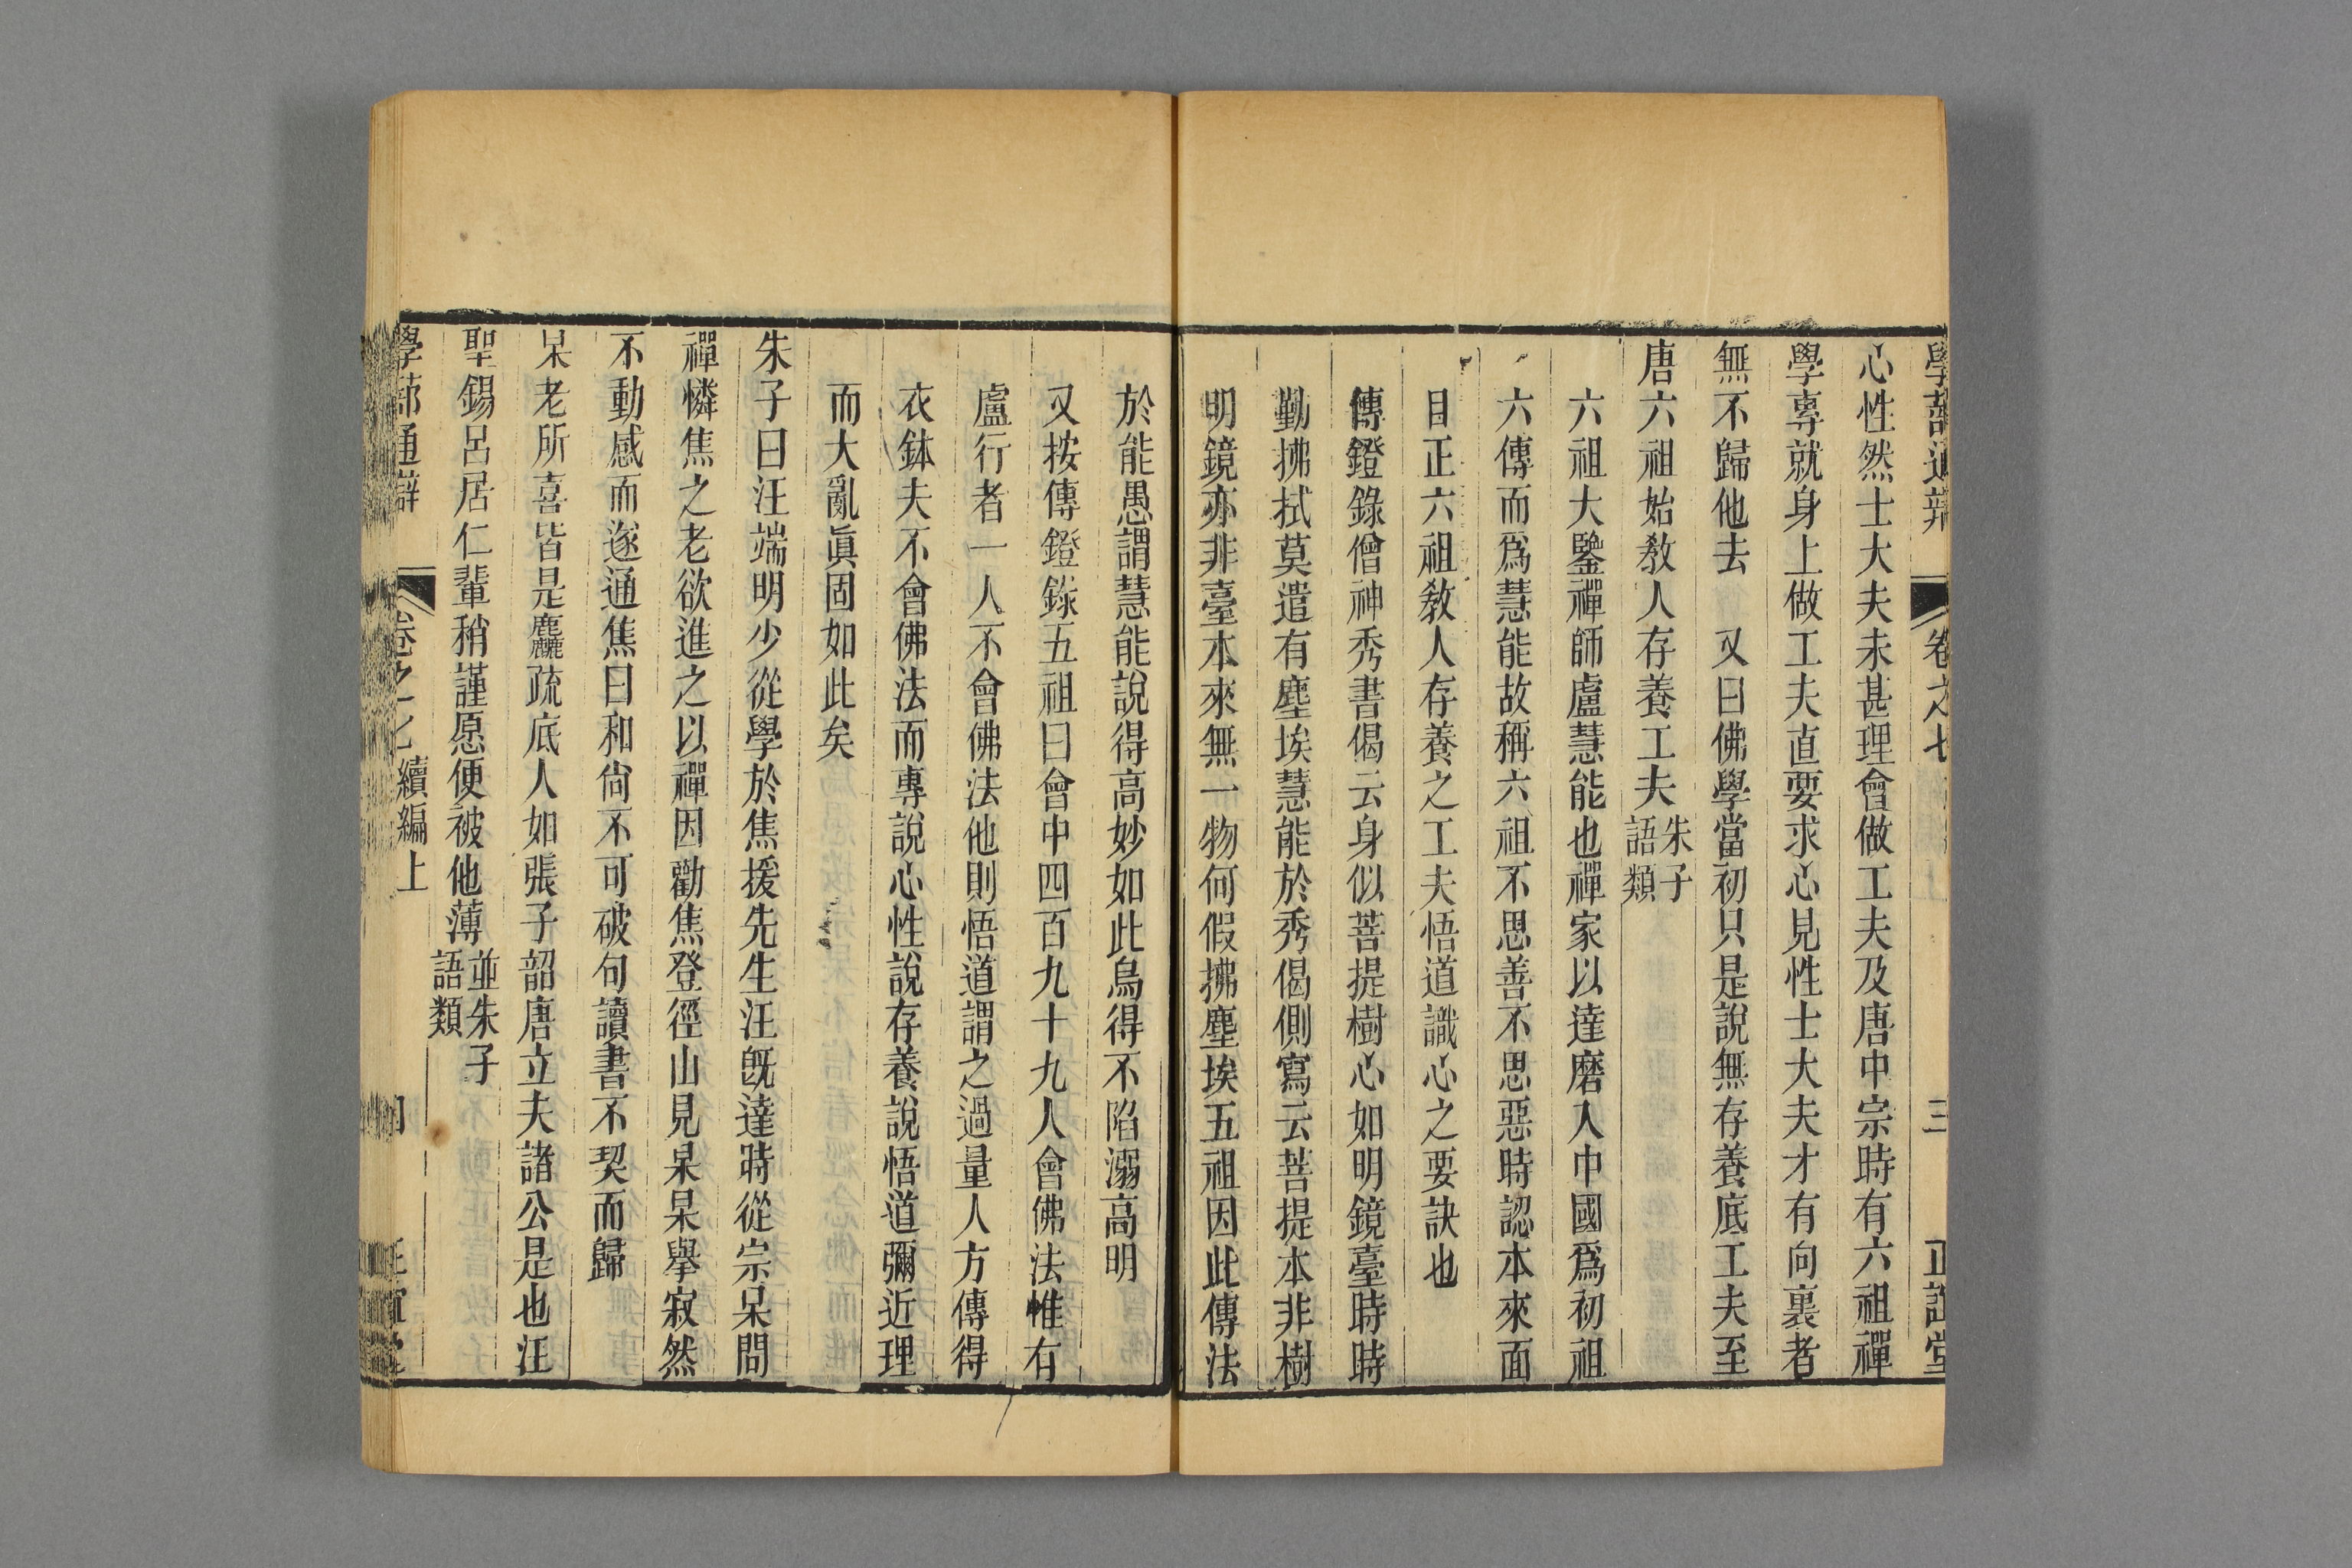 學蔀通辨 卷之七 三 正誼堂
心性然士大夫未甚理會做工夫及唐中宗時有六祖禪
學專就身上做工夫直要求心見性士大夫才有向裏者
無不歸他去 又曰佛學當初只是說無存養底工夫至
唐六祖始敎人存養工夫朱子語類
六祖大鑒禪師盧慧能也禪家以達磨入中國爲初祖
六傳而爲慧能故稱六祖不思善不思惡時認本來面
目正六祖敎人存養之工夫悟道識心之要訣也
傳鐙錄僧神秀書偈云身似菩提樹心如明鏡臺時時
勤拂拭莫遣有塵埃慧能於秀偈側寫云菩提本非樹
明鏡亦非臺本來無一物何假拂塵埃五祖因此傳法
於能愚謂慧能說得高妙如此烏得不陷溺高明
又按傳鐙錄五祖曰會中四百九十九人會佛法惟有
盧行者一人不會佛法他則悟道謂之過量人方傳得
衣鉢夫不會佛法而專說心性說存養說悟道彌近理
而大亂眞固如此矣
朱子曰汪端明少從學於焦援先生汪旣達時從宗杲問
禪憐焦之老欲進之以禪因勸焦登徑山見杲杲舉寂然
不動感而遂通焦曰和尙不可破句讀書不契而歸
杲老所喜皆是麤疏底人如張子韶唐立夫諸公是也汪
聖錫呂居仁輩稍謹愿便被他薄並朱子語類
學蔀通辨 卷之七 續編上 四 正誼堂